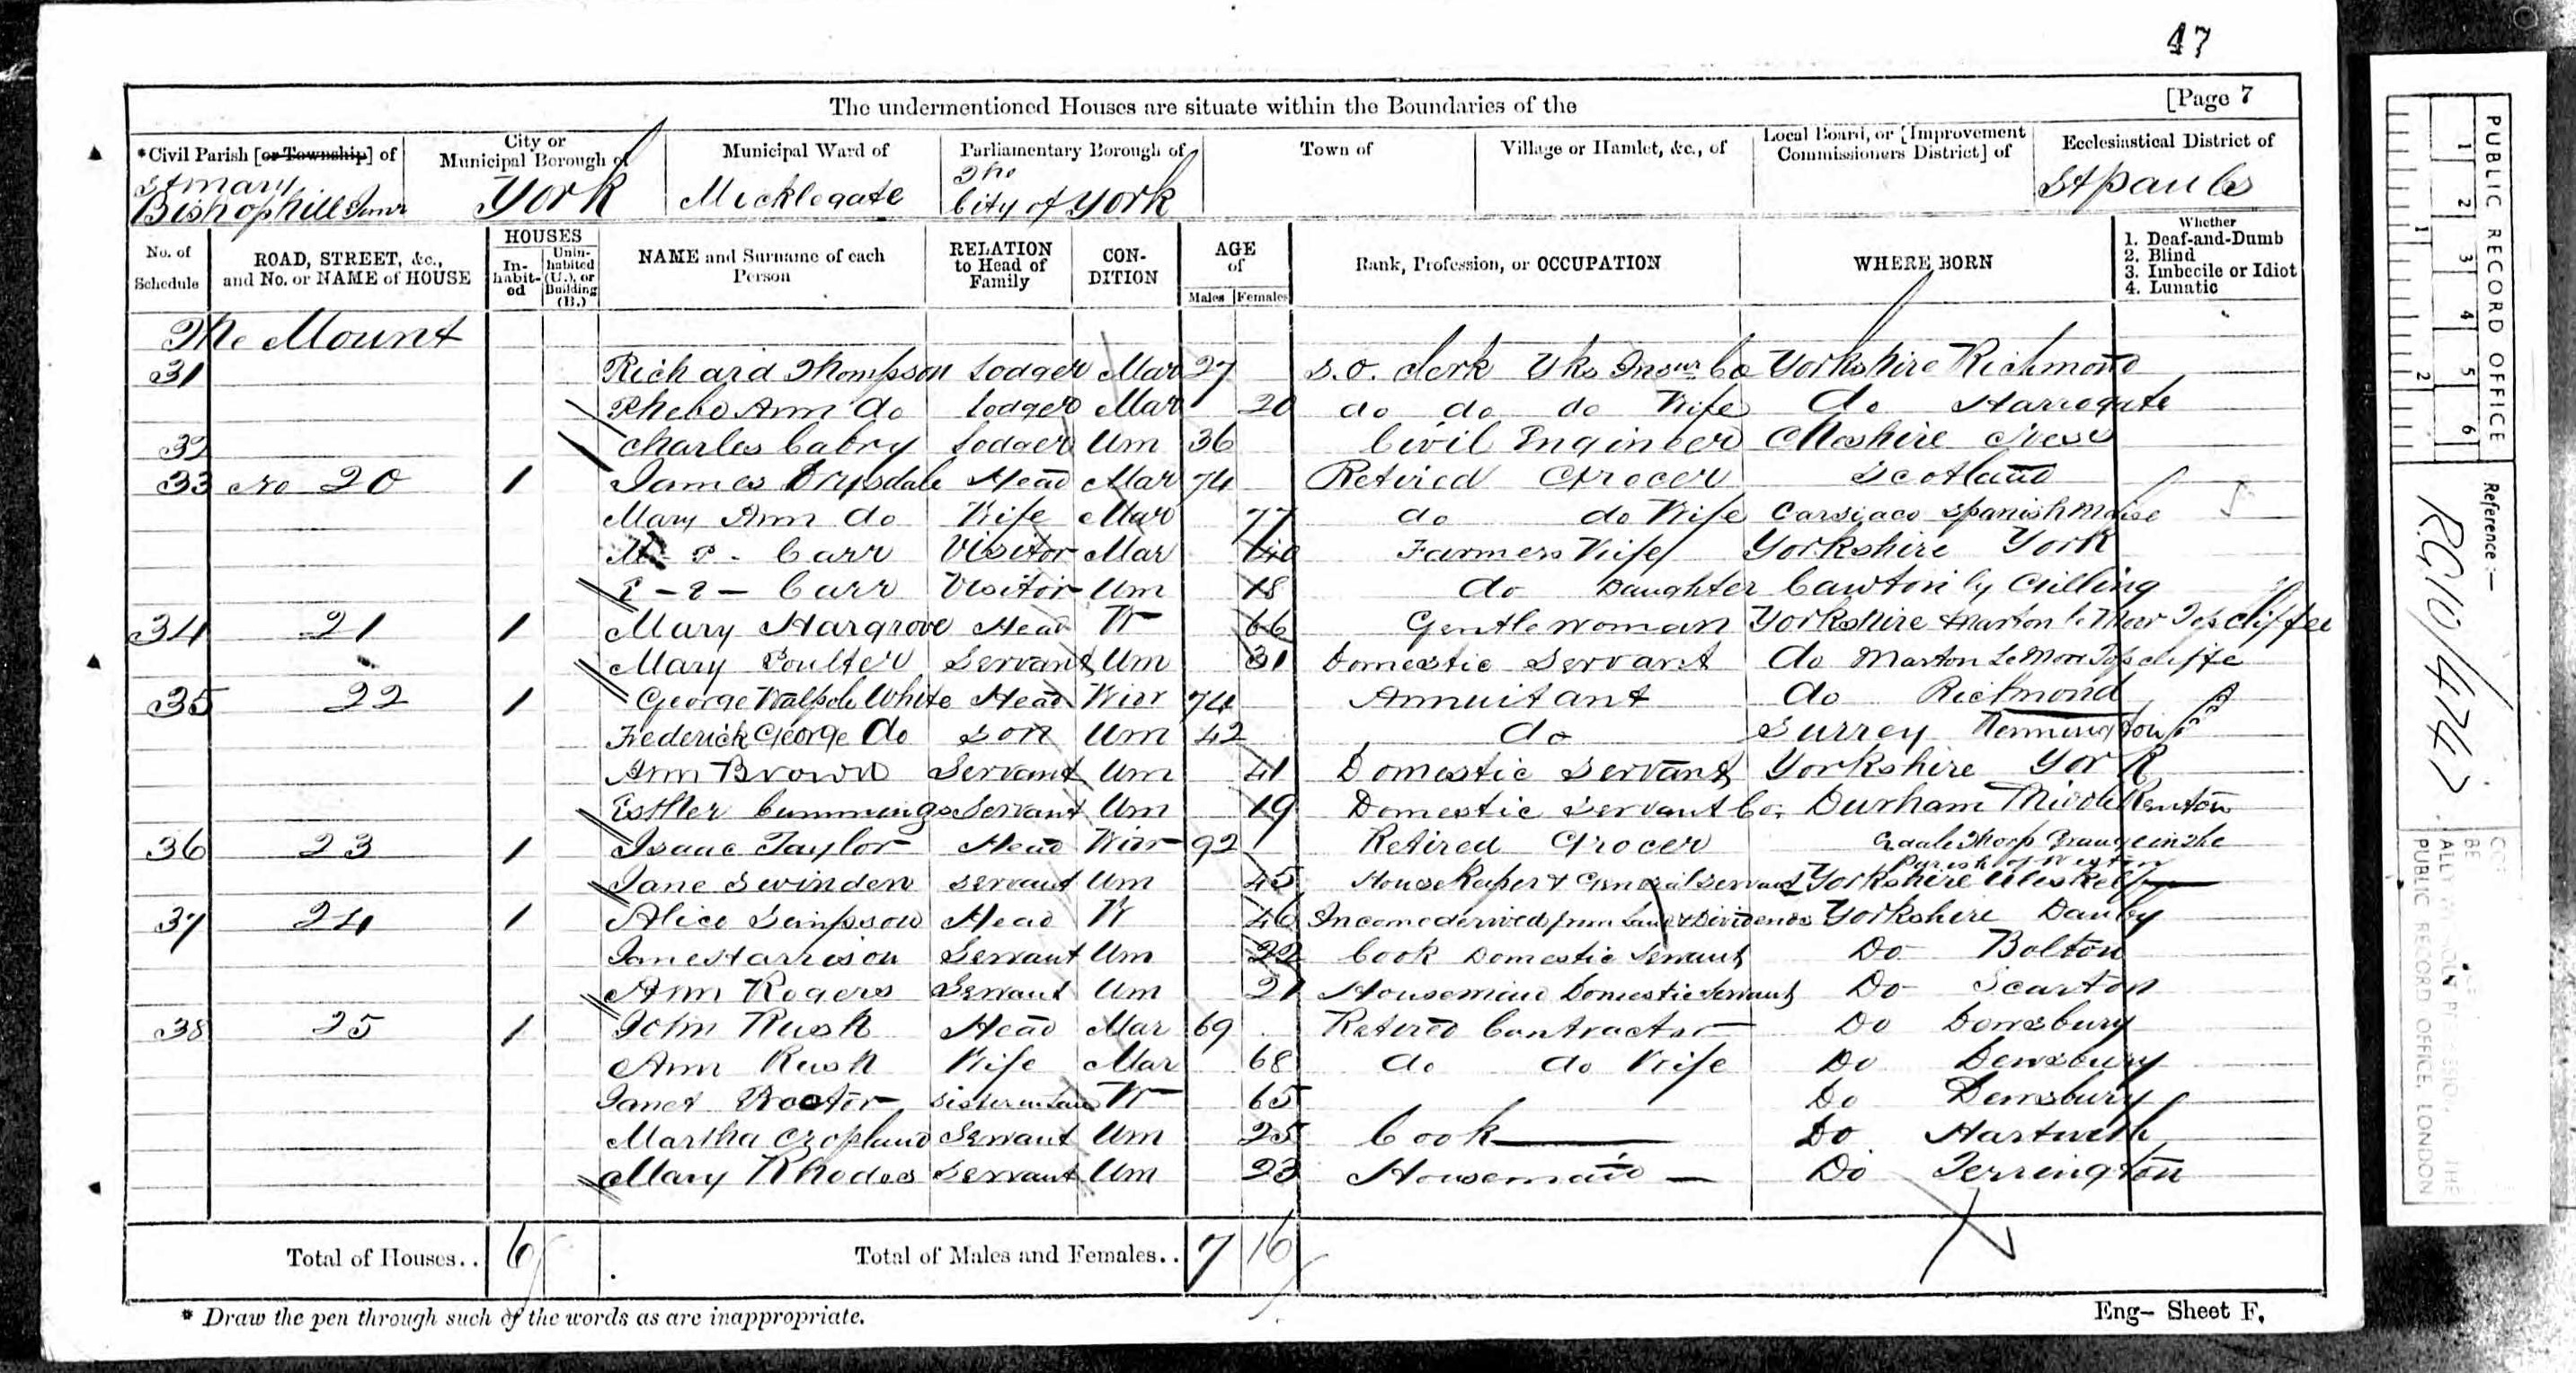 47
The undermentioned Houses are situate within the Boundaries of the [Page 7
*Civil Parish [or Township] of City or Municipal Borough of Municipal Ward of Parliamentary Borough of Town of Village or Hamlet, &c., of Local Board, or [Improvement Commissioners District] of Ecclesiastical District of
St Mary Bishophill Junr York Micklegate The City of York St Pauls
No. of Schedule ROAD, STREET, &c., and No. or NAME of HOUSE HOUSES Inhabited Uninhabited (U.), or Building (B.) NAME and Surname of each Person RELATION to Head of Family CONDITION AGE of Males Females Rank, Profession, or OCCUPATION WHERE BORN Whether 1. Deaf-and-Dumb 2. Blind 3. Imbecile or Idiot 4. Lunatic
The Mount
31 Richard Thompson Lodger Mar 27 S.O. Clerk Yks Insur Co Yorkshire Richmond
Phebe Ann do Lodger Mar 20 do do do Wife do Harrogate
32 Charles Cabry Lodger Um 36 Civil Engineer Cheshire
33 No 20 1 James Drysdale Head Mar 74 Retired Grocer Scotland
Mary Ann do Wife Mar 77 do do Wife Spanish
Carr Visitor Mar 40 Farmers Wife Yorkshire York
Carr Visitor Um 18 do Daughter Cawton by Gilling
34 21 1 Mary Hargrove Head W 66 Gentlewoman Yorkshire Marton le Moor Topcliffe
Mary Poulter Servant Um 31 Domestic Servant do Marton Le Moor Topcliffe
35 22 1 George Walpole White Head Widr 74 Annuitant do Richmond
Frederick George Do Son Um 42 do Surrey Kennington
Ann Brown Servant Um 41 Domestic Servant Yorkshire York
Esther Cummings Servant Um 19 Domestic Servant Co. Durham Middle
36 23 1 Isaac Taylor Head Widr 92 Retired Grocer Grange in the Parish of
Jane Swinden Servant Um 45 House Keeper & General Servant Yorkshire Ulleskelf
37 24 1 Alice Simpson Head W 46 Income derived from Land & Dividends Yorkshire Danby
Jane Harrison Servant Um 22 Cook Domestic Servant Do Bolton
Ann Rogers Servant Um 21 Housemaid Domestic Servant Do Scarton
38 25 1 John Rush Head Mar 69 Retired Contractor Do Dewsbury
Ann Rush Wife Mar 68 do do Wife Do Dewsbury
Janet Proctor Sister in Law W 65 Do Dewsbury
Martha Cropland Servant Um 25 Cook Do
Mary Rhodes Servant Um 23 Housemaid Do Terrington
Total of Houses.. 6 Total of Males and Females.. 7 16
* Draw the pen through such of the words as are inappropriate. Eng- Sheet F.
PUBLIC RECORD OFFICE
1 2 3 4 5 6
1 2
Reference:-
RG10/4747
PUBLIC RECORD OFFICE, LONDON